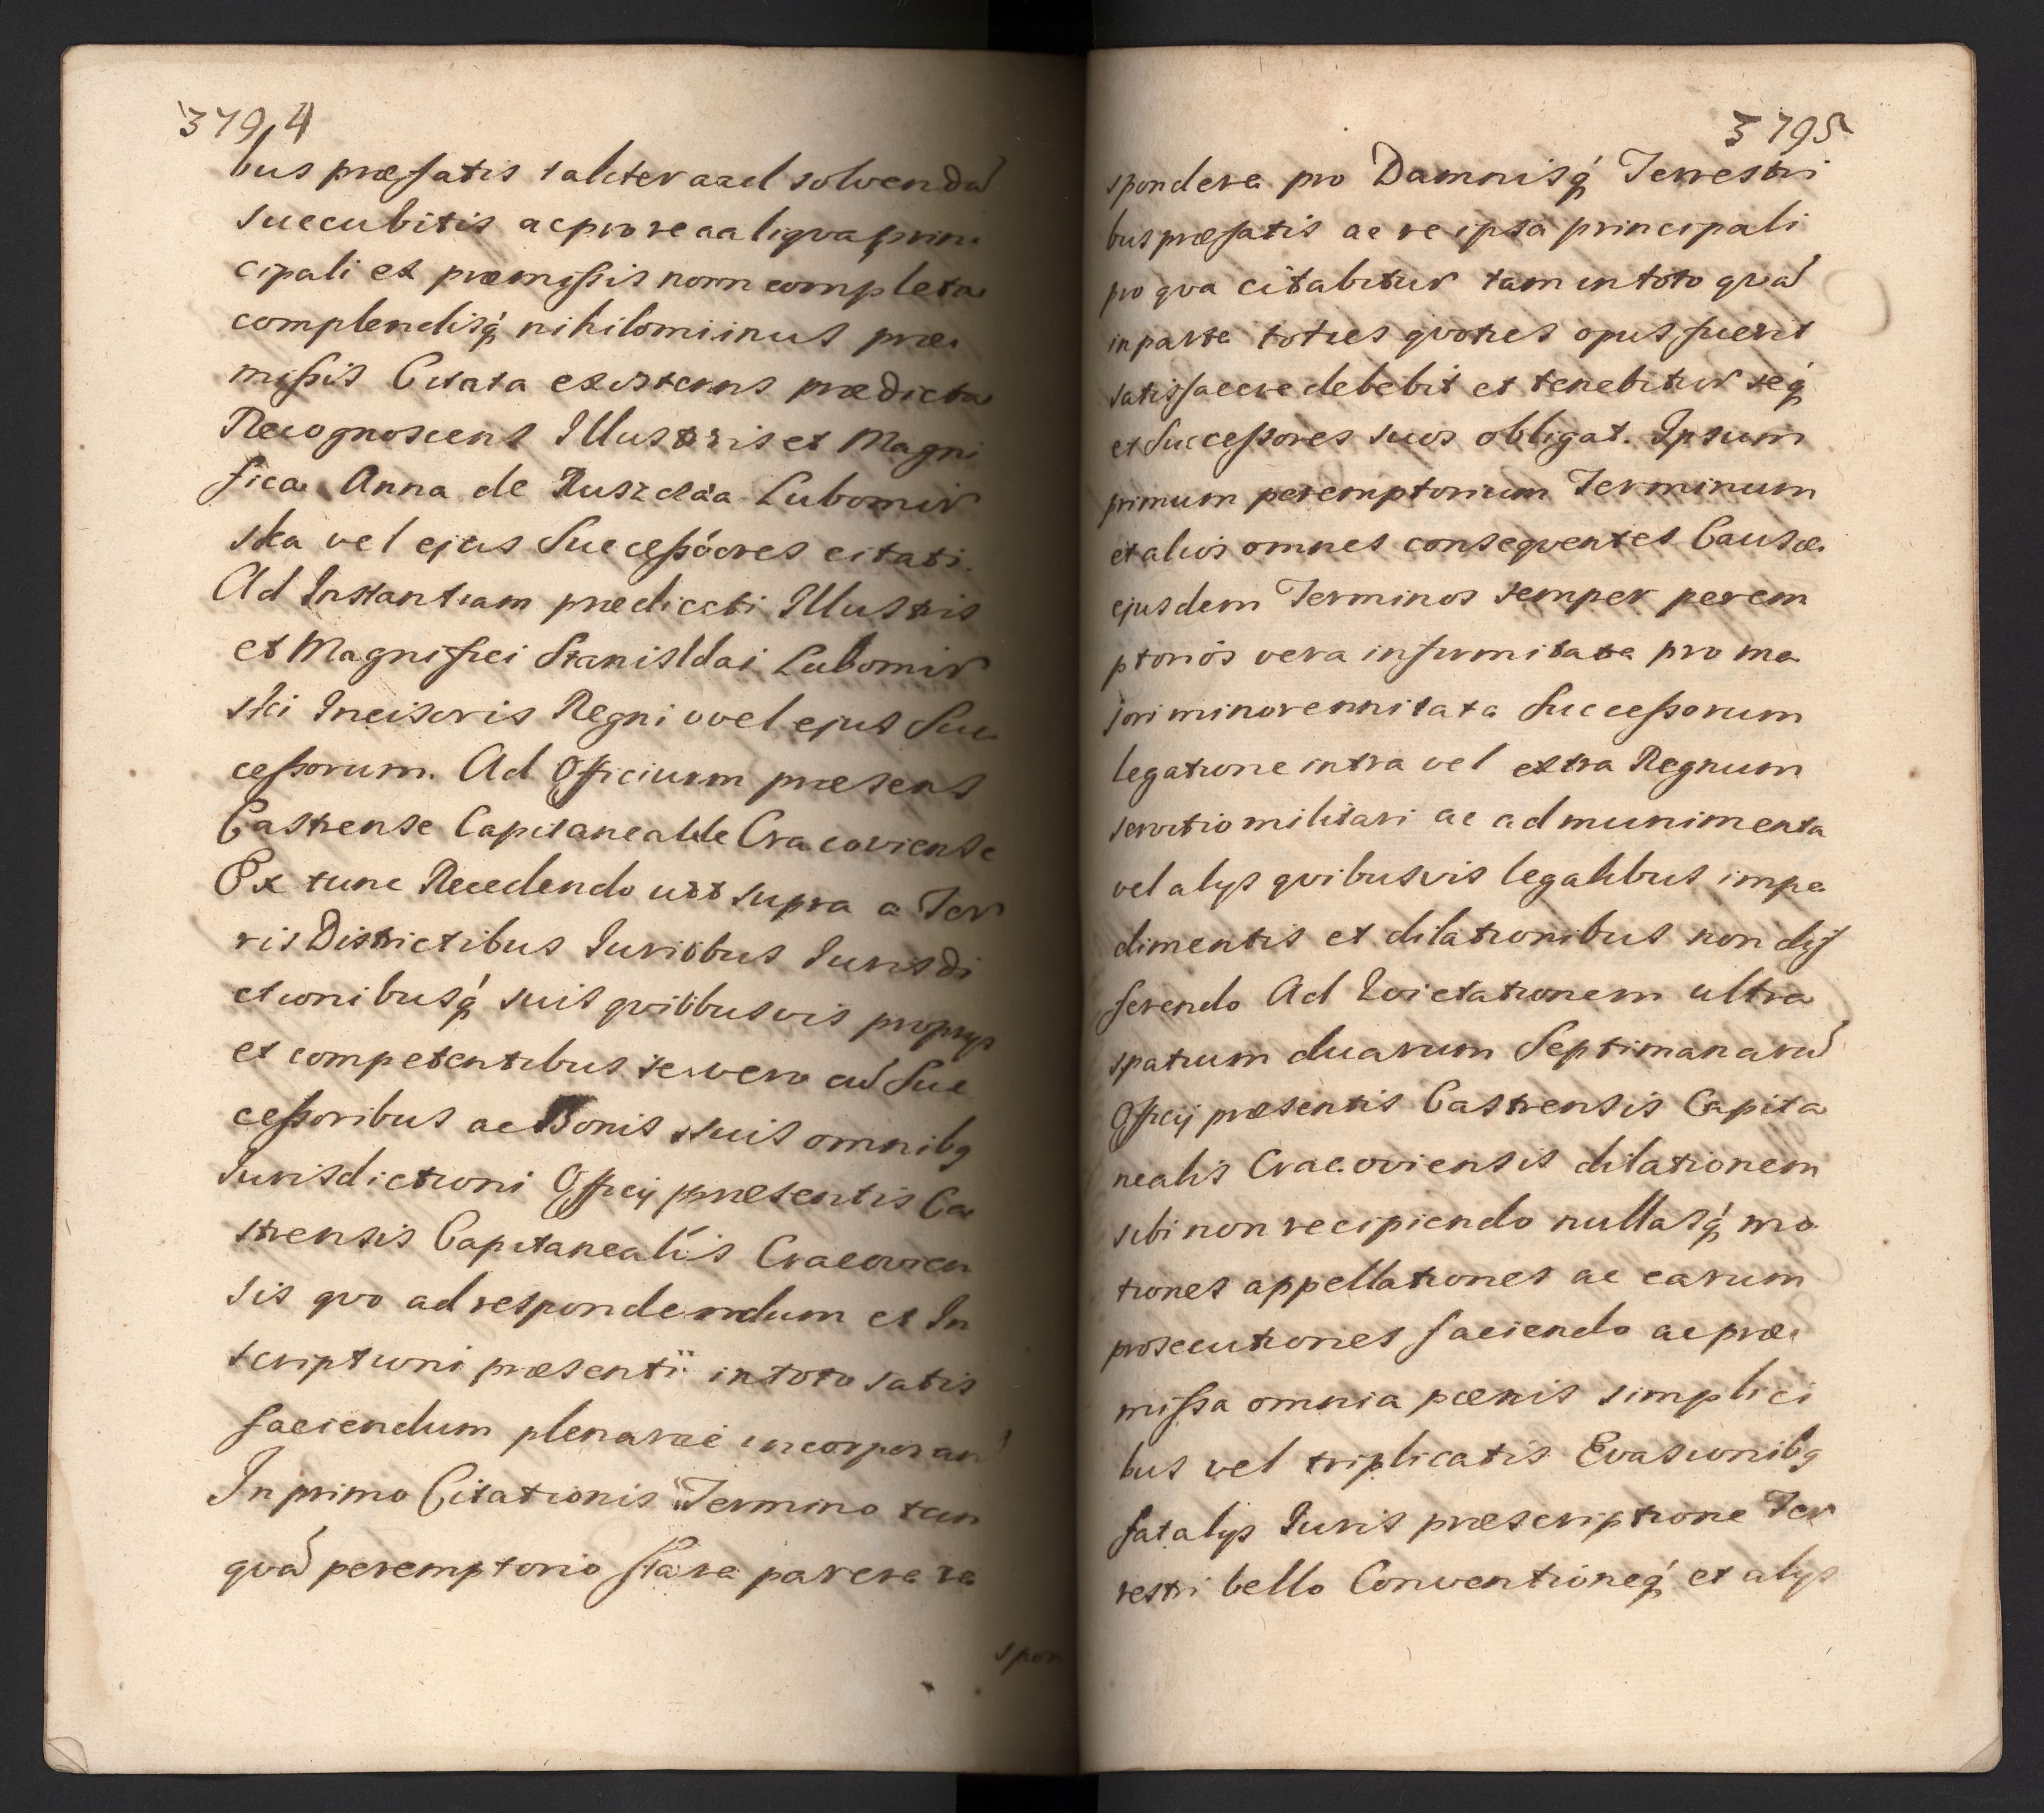 3794
bus præfatis taliter aad solvendã
succubitis ac pro re aaliqva prin
cipali et præmissis nonn completa
complendisq́ nihilomiinus præ
missis Citata existenns prædicta
Recognoscens Illustris et Magni
fica Anna de Ruszcza Lubomir
ska vel ejus Successóores citati.
Ad Instantiam prædicti Illustris
et Magnifici Stanislai Lubomir
ski Incisoris Regni vvel ejus Suc
cessorum. Ad Officiurm præsens
Castrense Capitaneale Cracoviense
Ex tunc Recedendo ut supra a Ter
ris Districtibus Juribus Jurisdi
ctionibusq́ suis qvibusvis proprys
et competentibus se vero cũ Suc
cessoribus ac Bonis suis omnibq
Jurisdictioni Officij præsentis Ca
strensis Capitanealis Cracovien
sis qvo ad respondendum et In
scriptioni præsenti in toto satis
faciendum plenariè incorporan
In primo Citationis Termino tan
qvã peremptorio stare parere re
spon
3795
spondere pro Damnisq́ Terrestri
bus præfatis ac re ipsa principali
pro qva citabitur tam in toto qvã
in parte toties qvoties opus fuerit
satisfacere debebit et tenebitur seq́
et Successores suos obligat. Ipsum
primum peremptorium Terminum
et alios omnes conseqventes Causæ
ejusdem Terminos semper perem
ptoriós vera infirmitate pro ma
jori minorennitate Successorum
legatione intra vel extra Regnum
servitio militari ac ad munimenta
vel alys qvibusvis legalibus impe
dimentis et dilationibus non dif
ferendo Ad Evictationem ultra
spatium duarum Septimanarũ
Officij præsentis Castrensis Capita
nealis Cracoviensis dilationem
sibi non recipiendo nullasq́ mo
tiones appellationes ac earum
prosecutiones faciendo ac præ
missa omnia pœnis simplici
bus vel triplicatis Evasionibq
fatalys Juris præscriptione Ter
restri bello Conventioneq́ et alys